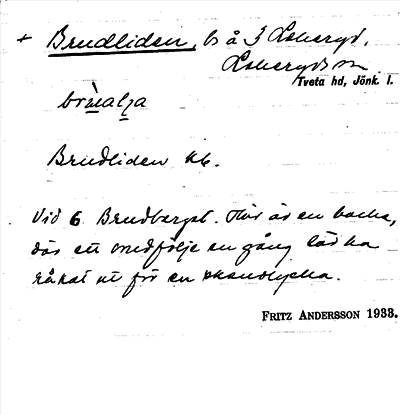 + Brudliden, ls å I Lekeryd.
Lekeryds sn
Tveta hd, Jönk. l.
Brudliden kk.
Vid 6 Brudberget. Här är en backe,
där ett brudfölje en gång lär ha
råkat ut för en skenolycka.
FRITZ ANDERSSON 1933.